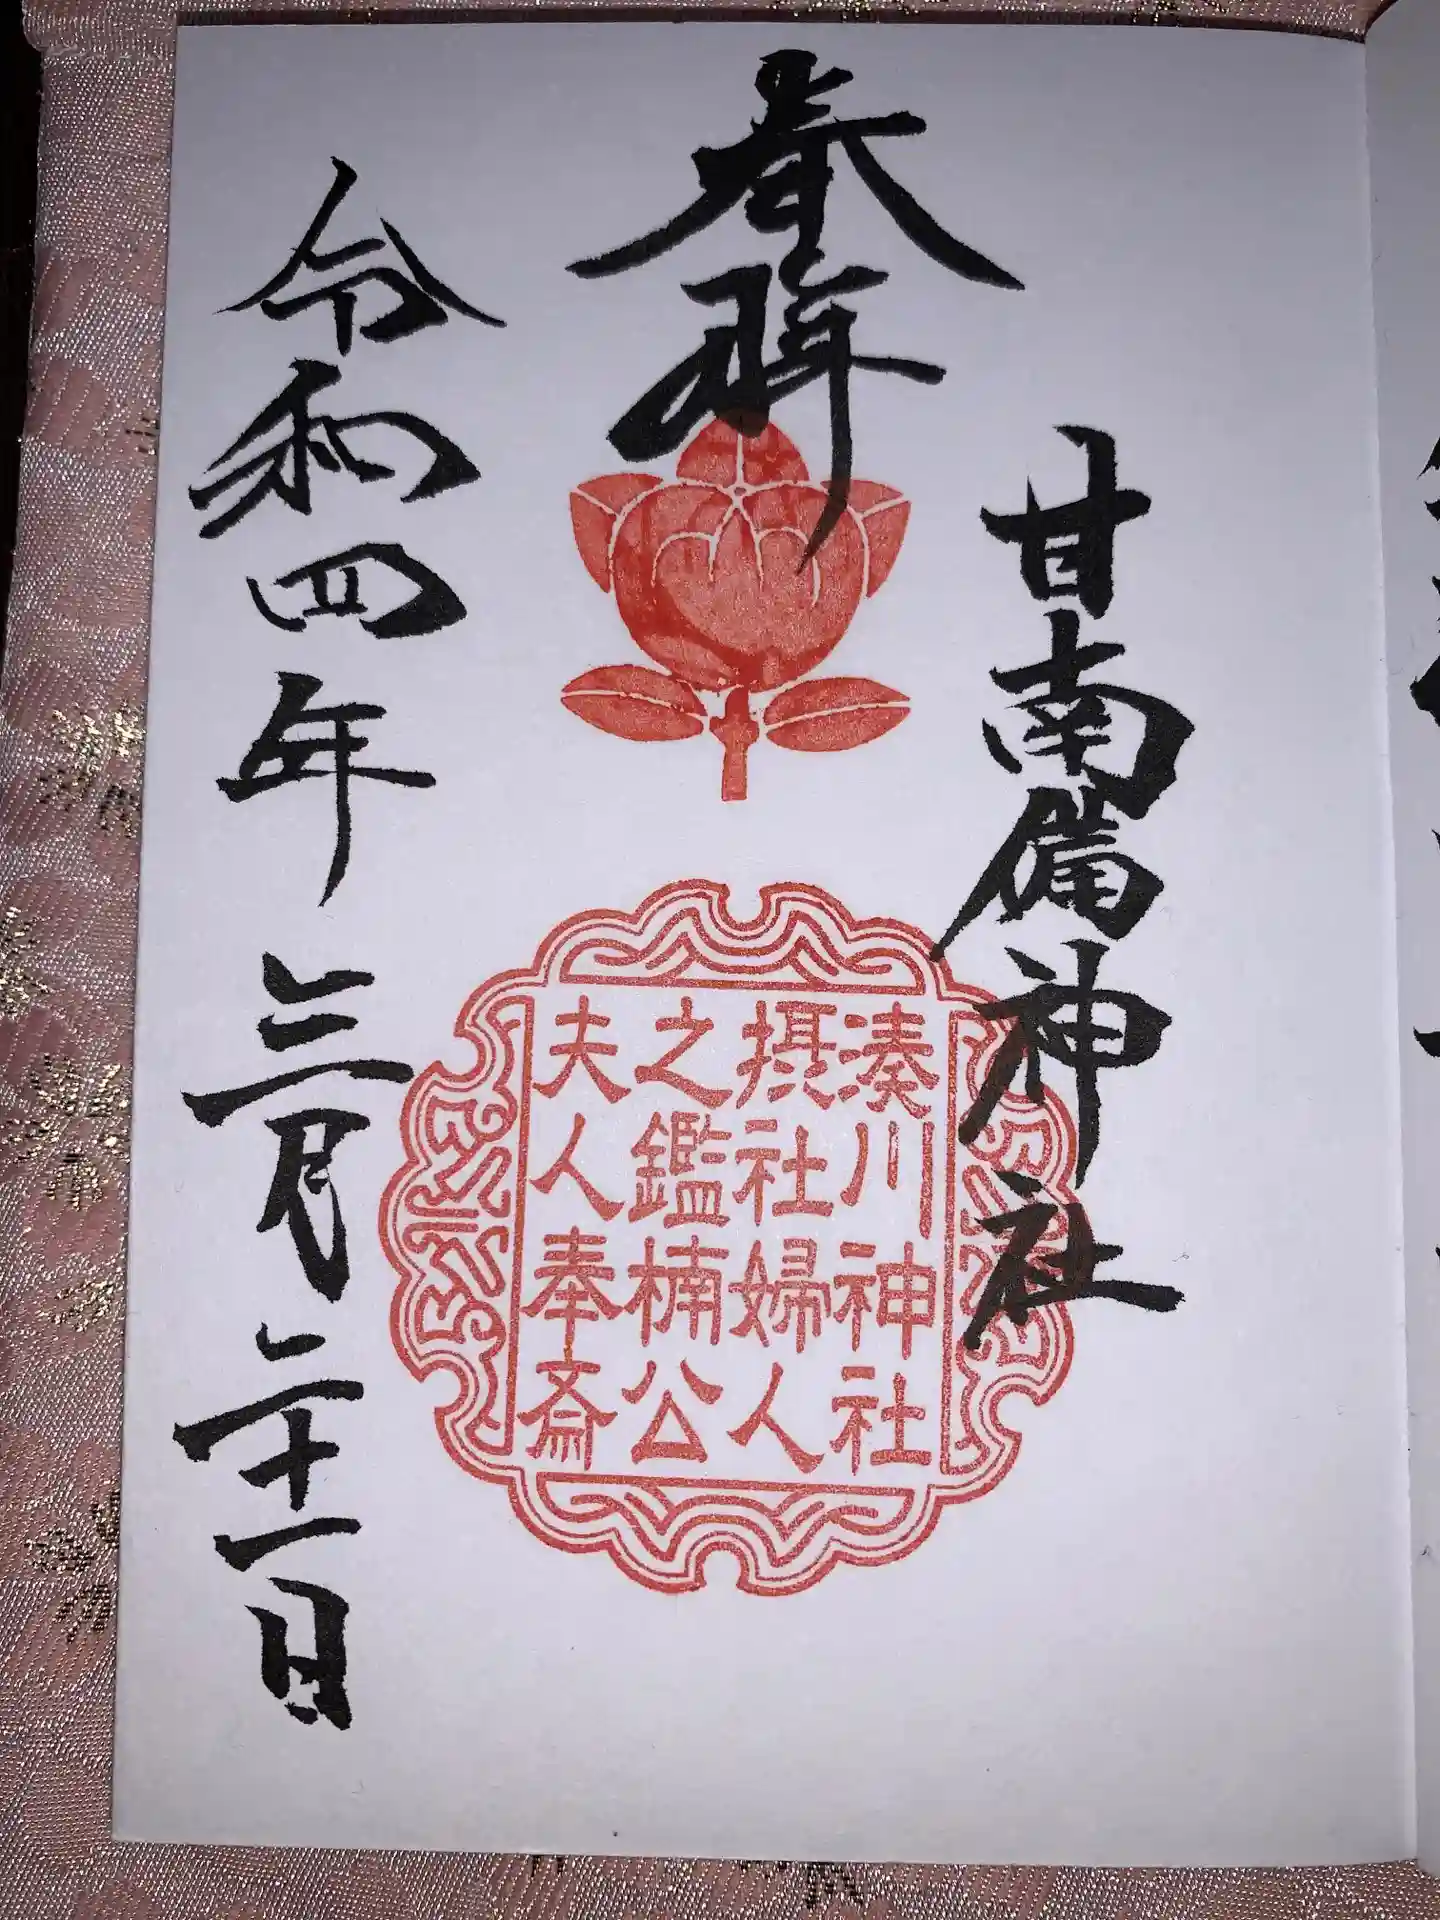 甘南備神社
奉拜
湊川神社
摂社婦人
之鑑楠公
夫人奉斎
令和四年三月二十一日